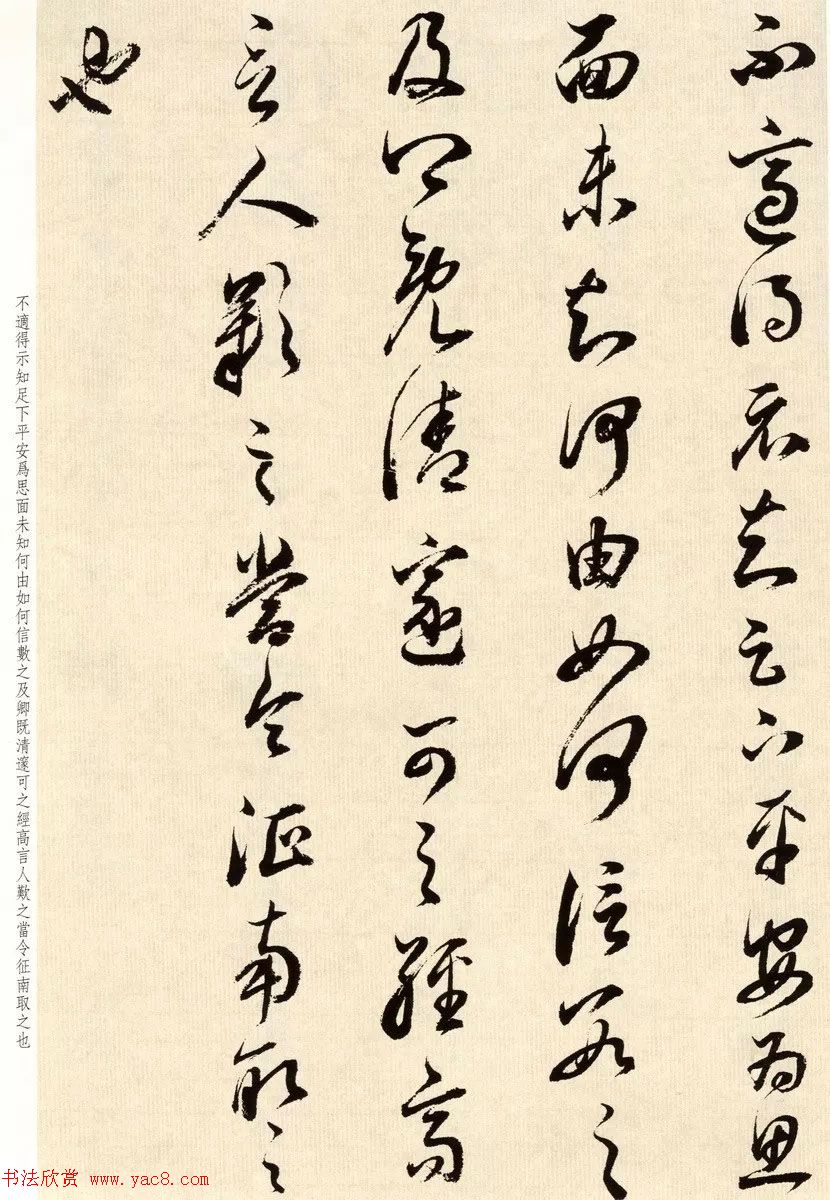 不適得示知足下平安為思
面未知何由如何信數之
及卿既清邃可之經高
言人歎之當令征南取之
也
不適得示知足下平安爲思面未知何由如何信數之及卿既清邃可之經高言人歎之當令征南取之也
书法欣赏 www.yac8.com